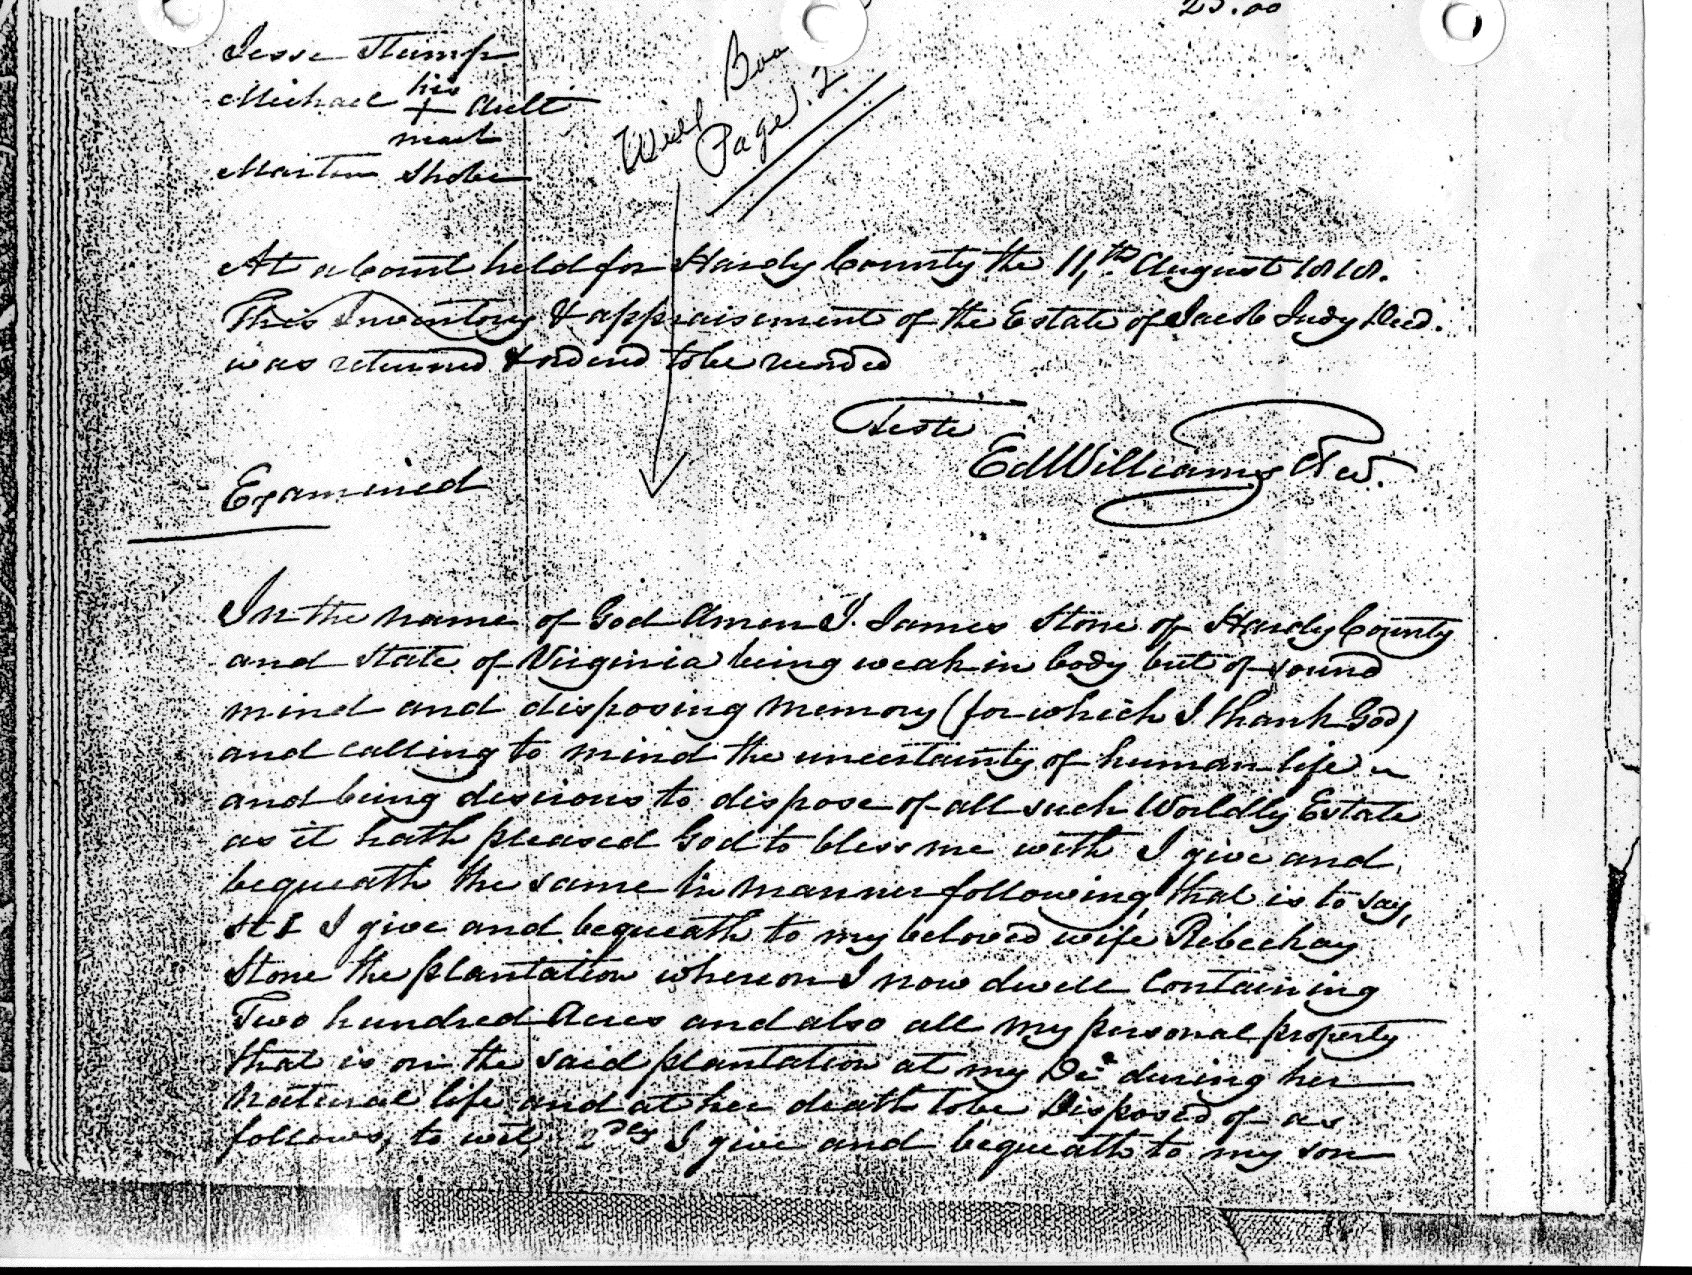 25.00
Jesse Stump
his
Michael + Ault
mark
Martin Shobe
Will Boo
Page 2.
At a Court held for Hardy County the 11,th August 1818.
This Inventory & appraisement of the Estate of Jacob Judy Decd.
was returned & ordered to be recorded
Teste
Ed Williams
Examined
In the name of God Amen I. James Stone of Hardy County
and State of Virginia being weak in body but of sound
mind and disposing memory (for which I thank God)
and calling to mind the uncertainty of human life
and being desirous to dispose of all such Worldly Estate
as it hath pleased God to bless me with I give and
bequeath the same in manner following, that is to say,
I give and bequeath to my beloved wife Rebeckay
Stone the plantation whereon I now dwell Containing
Two hundred Acres and also all my personal property
that is on the said plantation at my during her
natural life and at her death to be Disposed of as
follows, to wit, 2dly I give and bequeath to my son